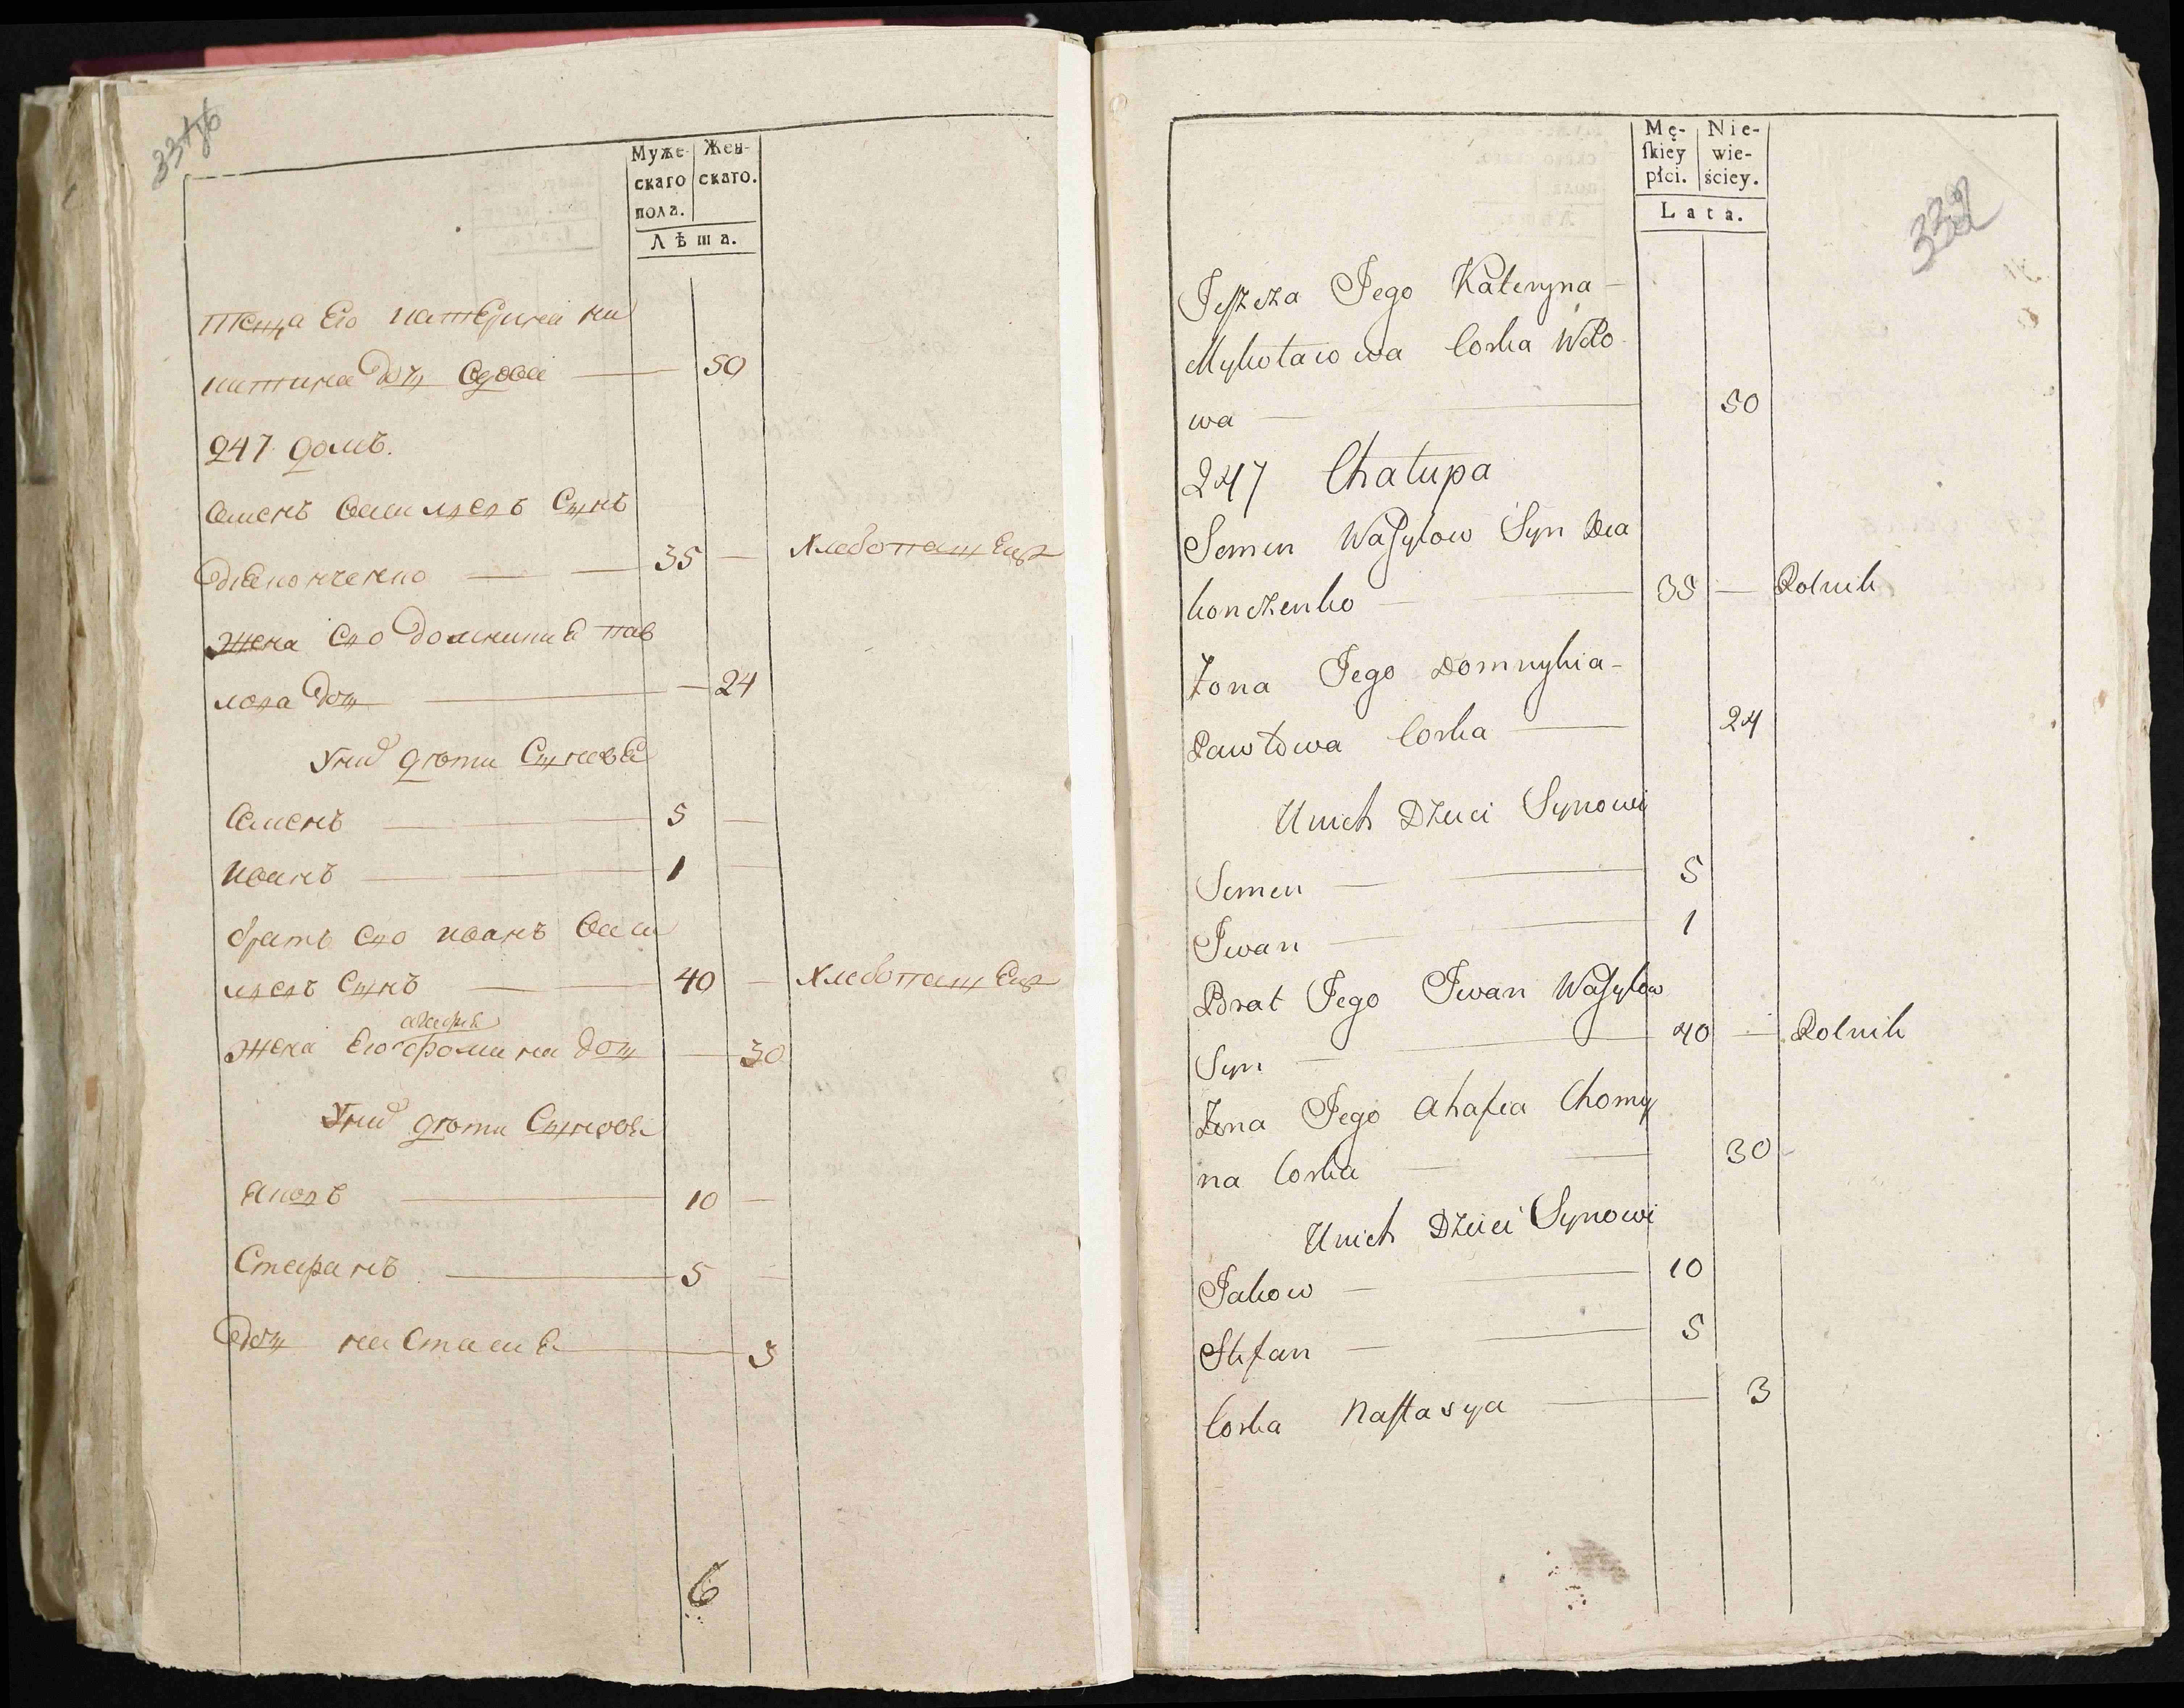 Муже- Жен-
скаго скаго.
пола.
Лѣта.
теща Его катерина ни
китина дочь вдова 50
247 домъ.
семенъ василевъ Сынъ
дияконченко 35 хлебопашець
жена Его домникия пав
лова дочь 24
У них дѣти Сыновя
Семенъ 5
иванъ 1
братъ Его иванъ васи
левъ Сынъ 40 хлебопашець
агафия
жена Его фомина дочь 30
У них дѣти Сыновя
яковъ 10
Стефанъ 5
дочь настасия 3
6
Mę- Nie-
ſkiey wie-
płci. ściey.
Lata.
332
Jego Kateryna
Mykołaiowa Corka Wdo
wa 50
247 Chałupa
Semen Waſylow Syn Dia
konczenko 35 Rolnik
Zona Jego Domnykia
Pawłowa Corka 24
Unich Dzieci Synowi
Semen 5
Iwan 1
Brat Jego Iwan Waſylow
Syn 40 Rolnik
Zona Jego Ahafia Chomy
na Corka 30
Unich Dzieci Synowi
Jakow 10
Stefan 5
Corka Naſtasya 3